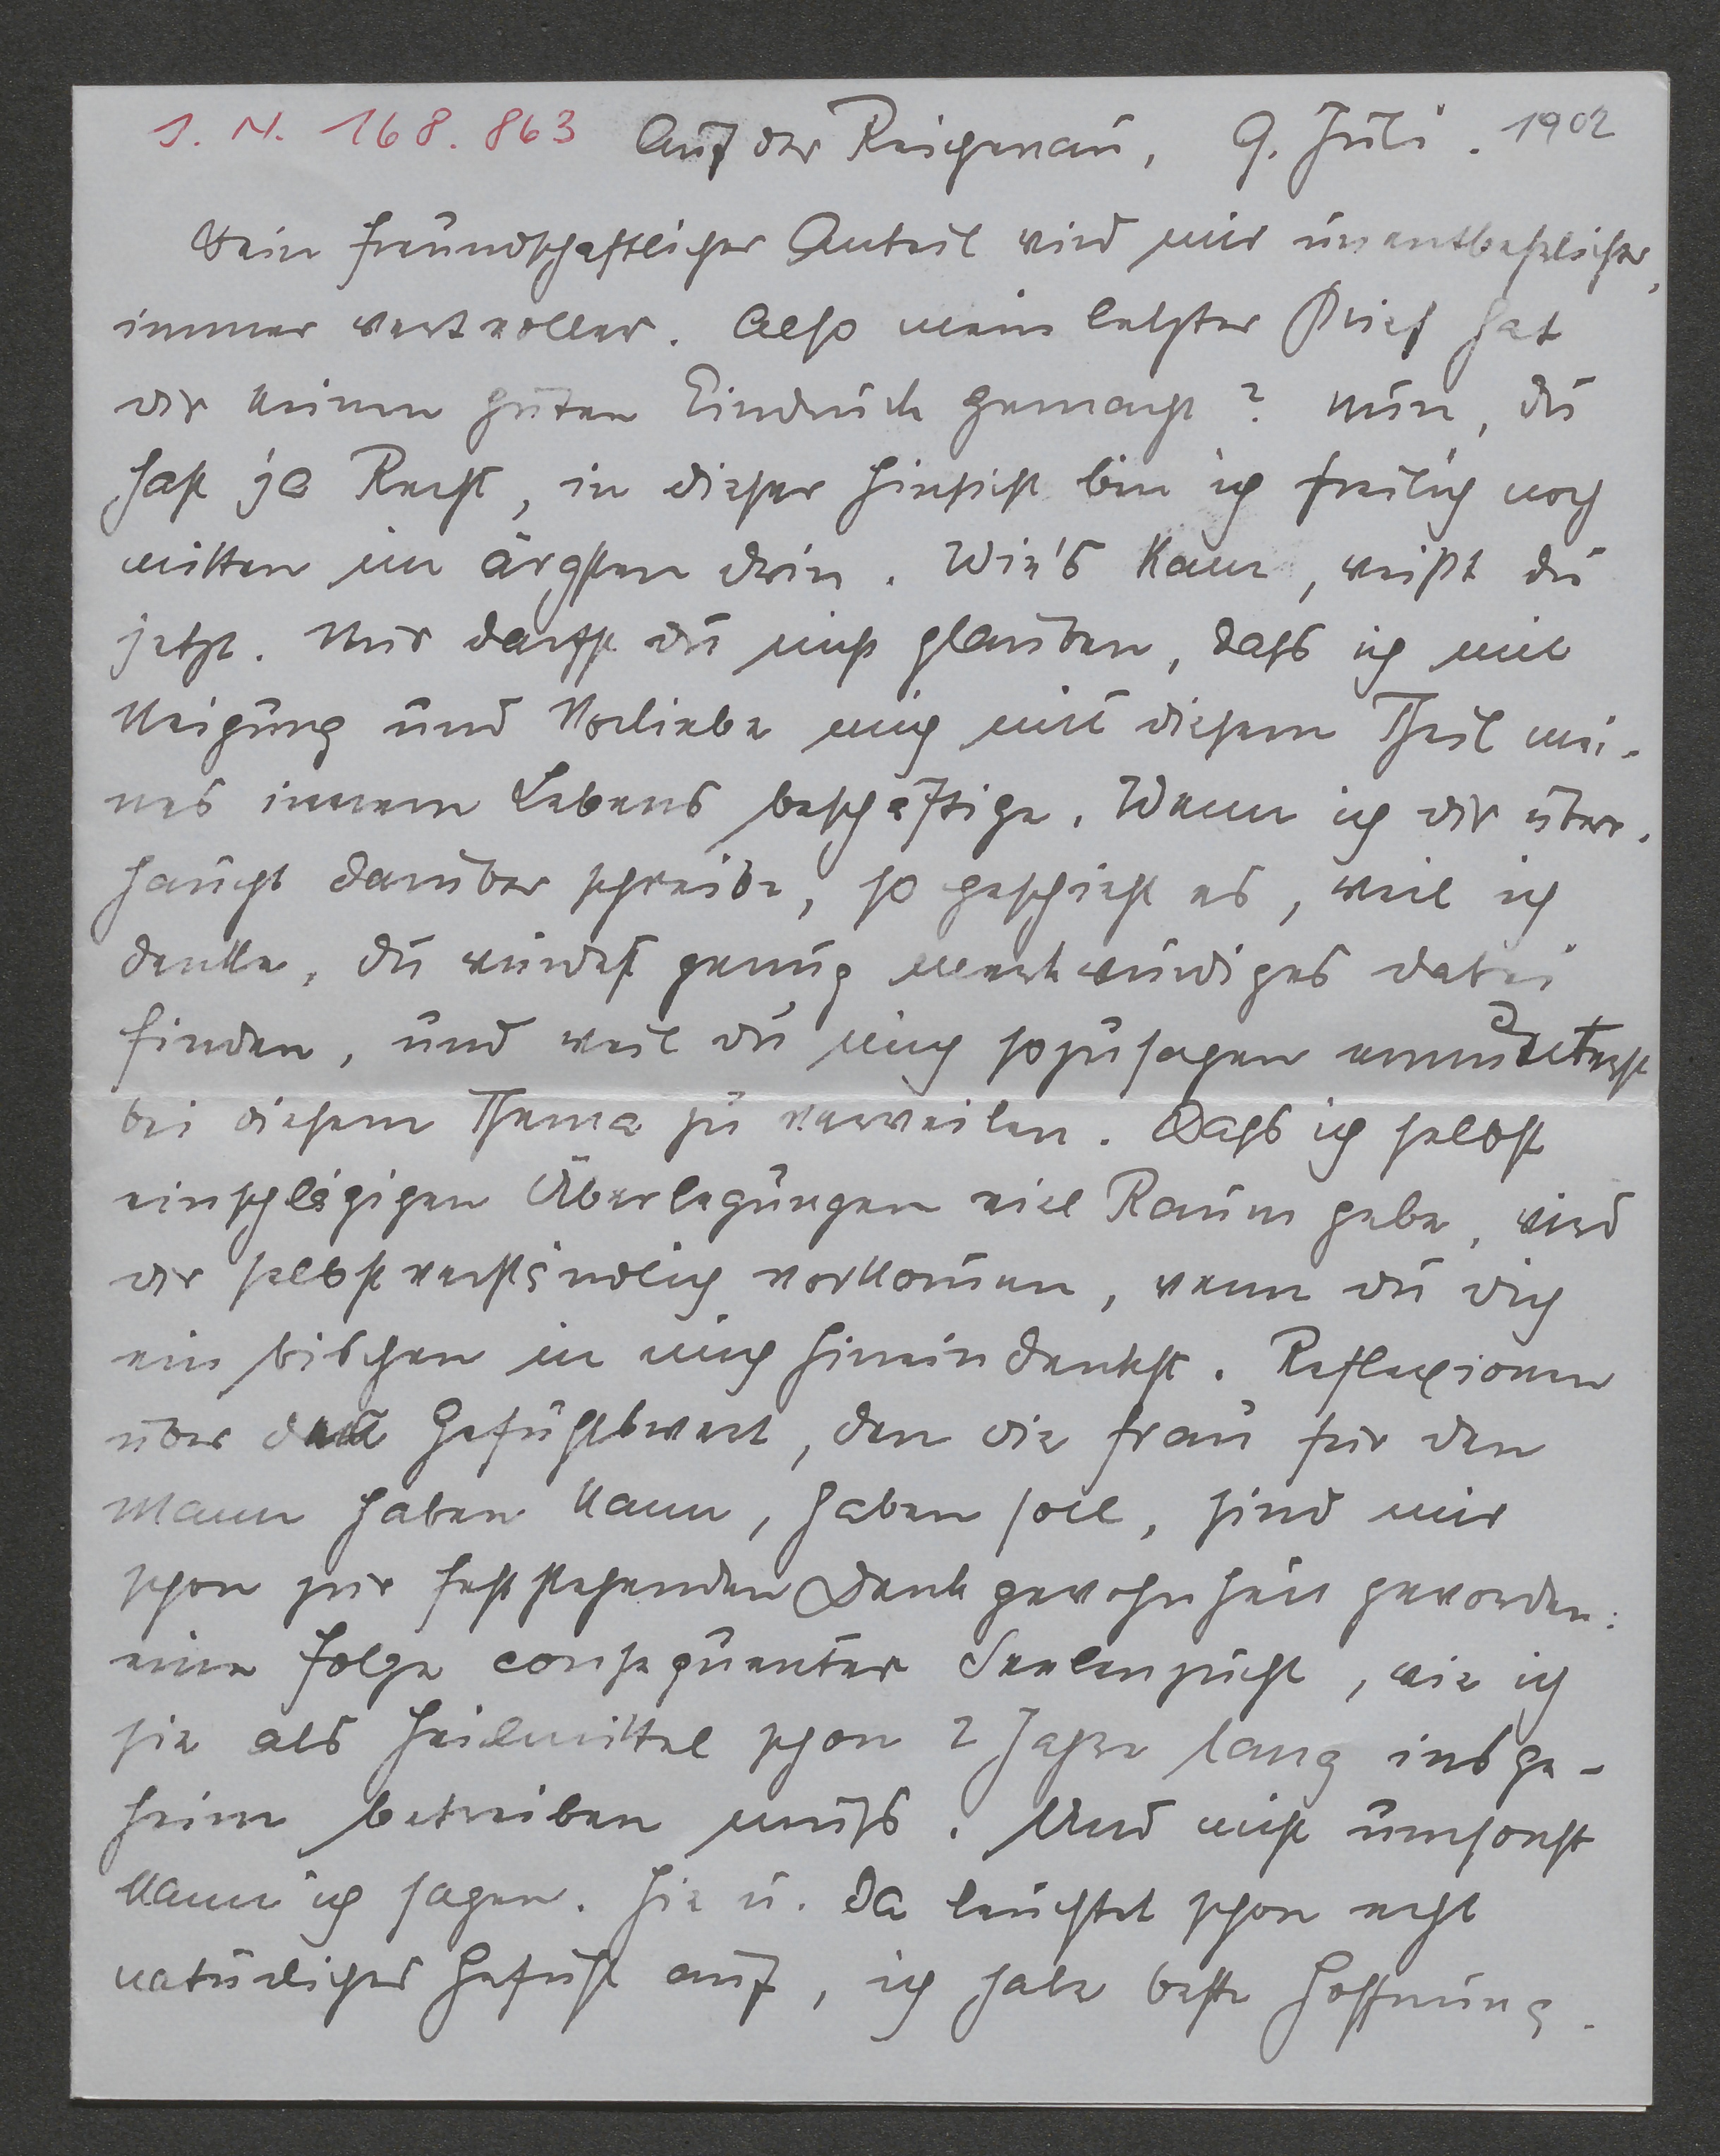 I. N. 168.863 Auf der Reichenau, 9. Juli. 1902
Dein freundschaftlicher Anteil wird mir unentbehrlicher,
immer wertvoller. Also mein letzter Brief hat
dir keinen guten Eindruck gemacht? Nun, du
hast ja Recht, in dieser Hinsicht bin ich freilich noch
mitten im ärgsten drin. Wie's kam, weißt du
jetzt. Nur darfst du nicht glauben, dass ich mit
Neigung und Vorliebe mich mit diesem Theil mei-
nes innern Lebens beschäftige. Wenn ich dir über-
haupt darüber schreibe, so geschieht es, weil ich
denke, du würdest genug merkwürdiges dabei
finden, und weil du mich sozusagen ermuntertest
bei diesem Thema zu verweilen. Dass ich selbst
einschlägigen Überlegungen viel Raum gebe, wird
dir selbstverständlich vorkom̅en, wenn du dich
ein bischen in mich hineindenkst. Reflexionen
über den Gefühlswert, den die Frau für den
Mann haben kann, haben soll, sind mir
schon zur feststehenden Denkgewohnheit geworden:
eine Folge consequenter Seelenzucht, wie ich
sie als Heilmittel schon 2 Jahre lang insge-
heim betreiben muß. Und nicht umsonst
kann ich sagen. Hie u. da leuchtet schon recht
natürliches Gefühl auf, ich habe beste Hoffnung.